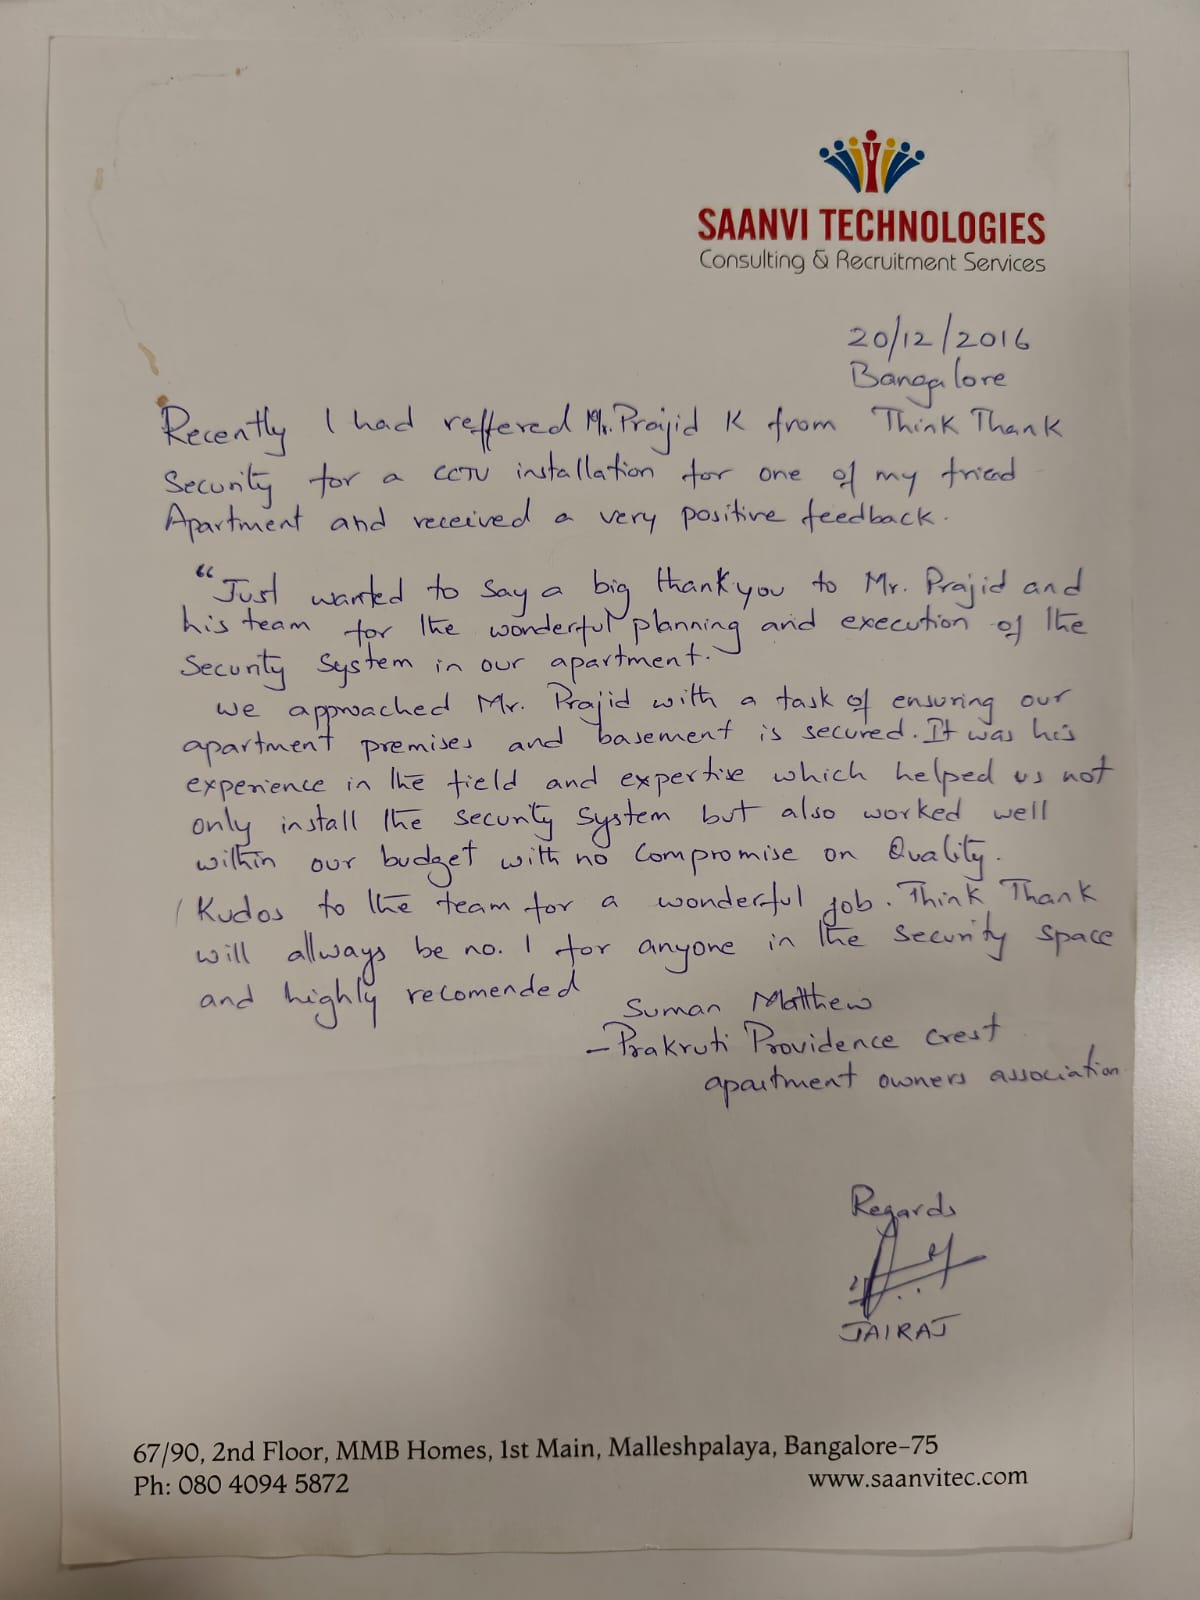 SAANVI TECHNOLOGIES
Consulting & Recruitment Services
20/12/2016
Bangalore
Recently I had reffered Mr. Prajid K from Think Thank
Security for a CCTV installation for one of my friend
Apartment and received a very positive feedback.
"Just wanted to say a big thank you to Mr. Prajid and
his team for the wonderful planning and execution of the
Security System in our apartment.
We approached Mr. Prajid with a task of ensuring our
apartment premises and basement is secured. It was his
experience in the field and expertise which helped us not
only install the security system but also worked well
within our budget with no compromise on Quality.
Kudos to the team for a wonderful job. Think Thank
will allways be no. 1 for anyone in the security space
and highly recomended
Suman Matthew
– Prakruti Providence Crest
apartment owners association
Regards
JAIRAJ
67/90, 2nd Floor, MMB Homes, 1st Main, Malleshpalaya, Bangalore-75
Ph: 080 4094 5872
www.saanvitec.com